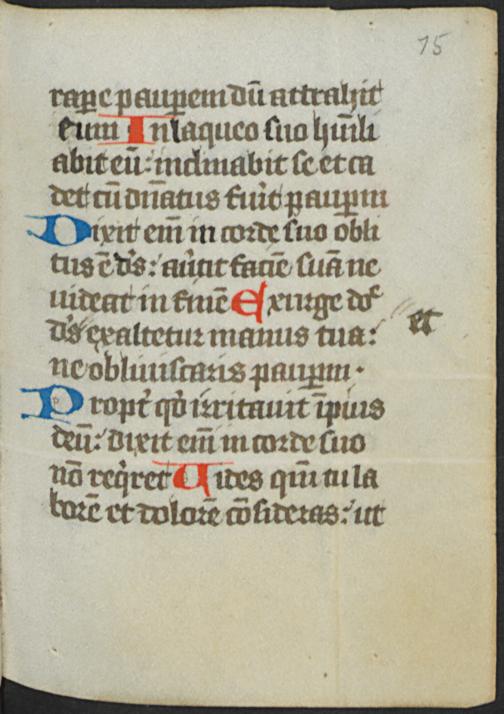 15
rape paupem dū attrahit
eum Inlaqueo suo humili
abit eū: inclinabit se et ca
det cū dn̄atus fuit paupm
Dixit em̄ in corde suo obli
tus ē ds̄: au̇tit faciē suā ne
uideat in finē Exurge do
ds̄ exaltetur manus tua: et
ne obliuiscaris paupm.
Propt̄ qd̄ irritauit ip̄ius
deū: dixit em̄ in corde suo
nō requ̇ret Uides qm̄ tu la
borē et dolorē cōsideras: ut